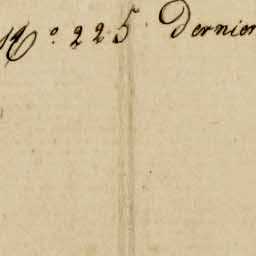 N.º 225 Dernier